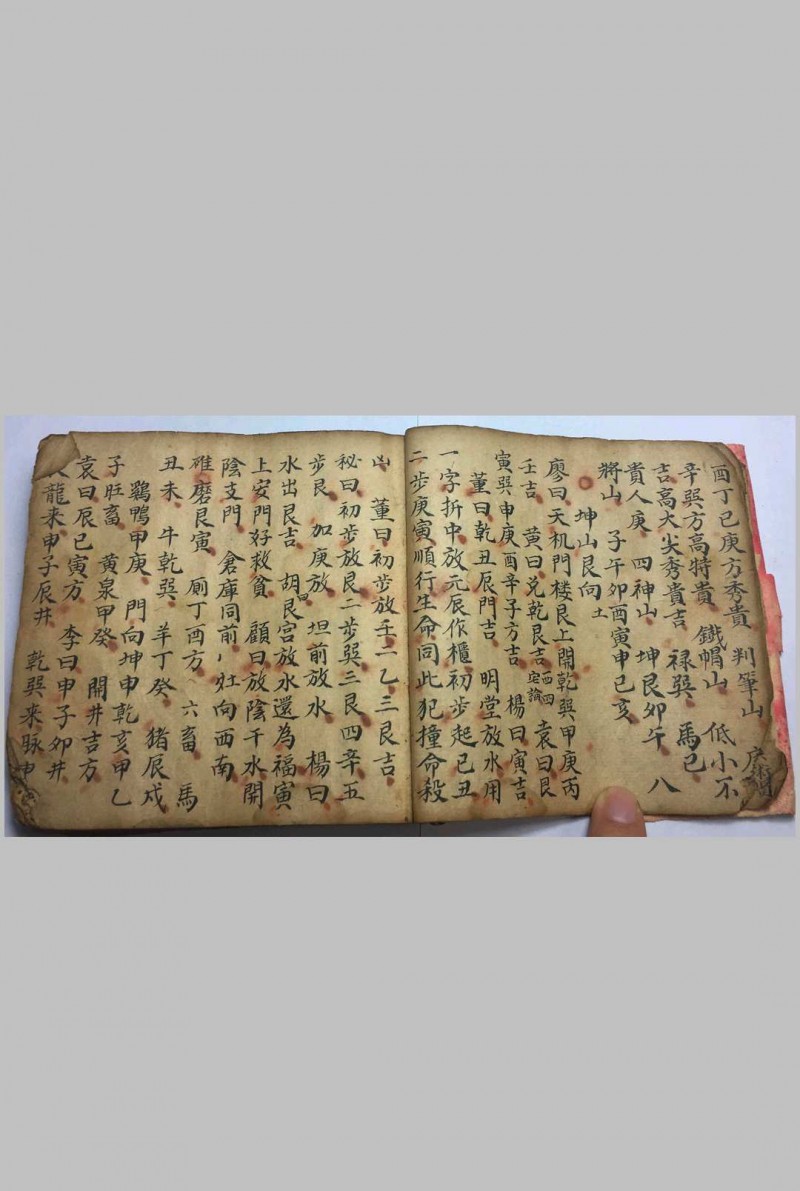 酉丁巳庚方秀貴　判筆山
辛巽方高特貴　鐵帽山　低小不
吉高大尖秀貴吉　禄巽　馬巳
貴人庚　四神山　坤艮卯午　八
將山　子午卯酉寅申巳亥
坤山艮向土
廖曰天机門楼艮上開乾巽甲庚丙
壬吉　黄曰兑乾艮吉　袁曰艮
寅巽申庚酉辛子方吉　楊曰寅吉
董曰乾丑辰門吉　明堂放水用
一字折中放元辰作櫃初步起巳丑
二步庚寅順行生命同此犯撞命殺
凶　董曰初步放壬二乙三艮吉
秘曰初步放艮二步巽三艮四辛五
步艮　加庚放　坦前放水　楊曰
水出艮吉　胡曰艮宫放水還為福寅
上安門好救貧　顧曰放陰干水開
陰支門　倉庫同前　灶向西南
碓磨艮寅　厠丁酉方　六畜　馬
丑未　牛乾巽　羊丁癸　豬辰戍
鷄鴨甲庚　門向坤申乾亥甲乙
子旺畜　黄泉甲癸　開井吉方
袁曰辰巳寅方　李曰申子卯井
龍来申子辰井　乾巽来脉申